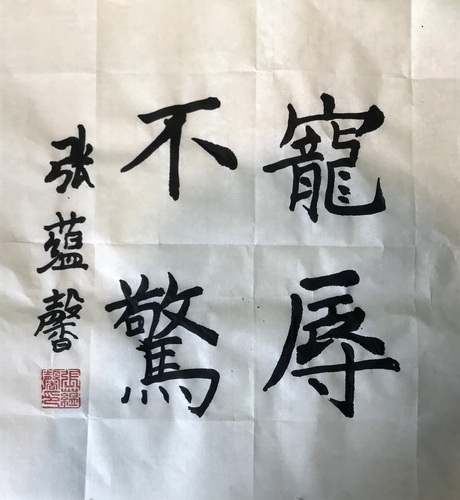 寵辱
不驚
张蕴馨